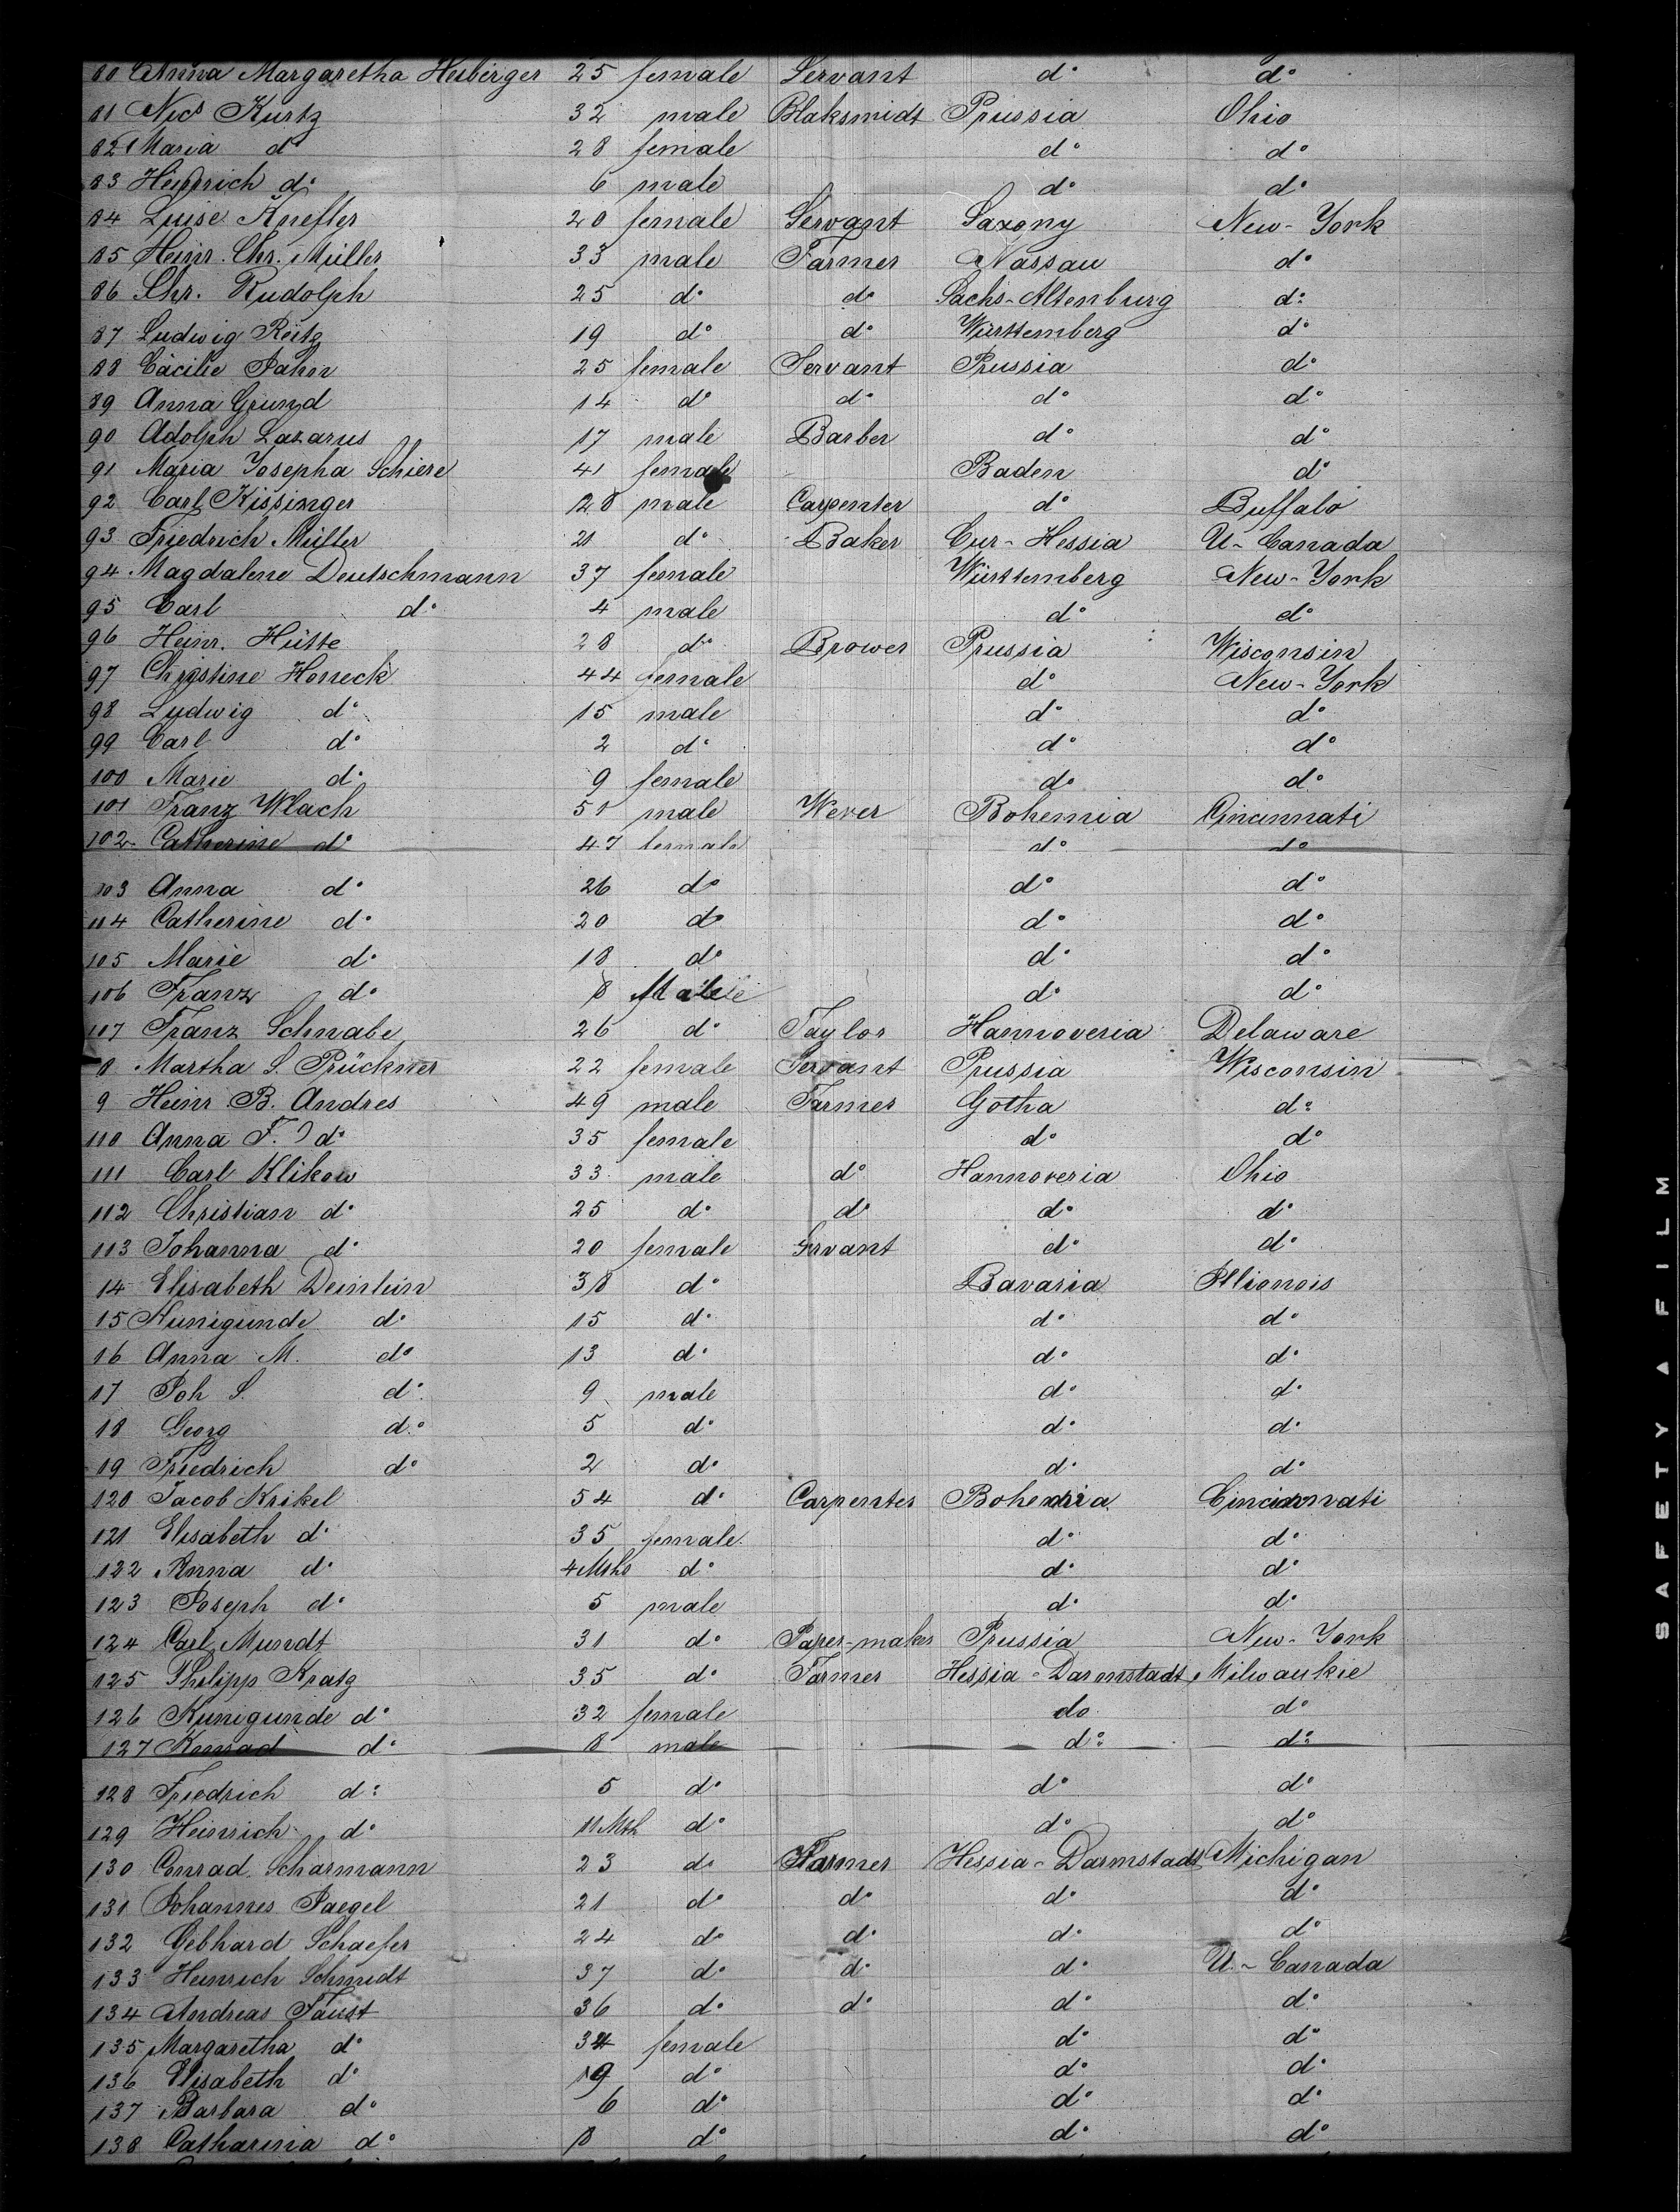 80 Anna Margaretha Heiberger 25 female Servant do do
81 Nics Kurtz 32 male Blaksmidt Prussia Ohio
82 Maria do 28 female do do
83 Heinrich do 6 male do do
84 Luise Knefler 20 female Servant Saxony New-York
85 Heinr. Chr. Müller 33 male Farmer Nassau do
86 Chr. Rudolph 25 do do Sachs-Altenburg do
87 Ludwig Reitz 19 do do Württemberg do
88 Cäcilie Jahon 25 female Servant Prussia do
89 Anna Grund 14 do do do do
90 Adolph Lazarus 17 male Barber do do
91 Maria Josepha Schiere 41 female Baden do
92 Carl Kissinger 28 male Carpenter do Buffalo
93 Friedrich Müller 21 do Baker Cur-Hessia U-Canada
94 Magdalene Deutschmann 37 female Württemberg New-York
95 Carl do 4 male do do
96 Heinr. Hütte 28 do Brower Prussia Wisconsin
97 Christine Horneck 44 female do New-York
98 Ludwig do 15 male do do
99 Carl do 2 do do do
100 Marie do 9 female do do
101 Franz Wlach 51 male Wever Bohemia Cincinnati
102 Catherine do 47 female do do
103 Anna do 26 do do do
104 Catherine do 20 do do do
105 Marie do 18 do do do
106 Franz do 8 Male do do
107 Franz Schwabe 26 do Taylor Hannoveria Delaware
8 Martha S. Prückner 22 female Servant Prussia Wisconsin
9 Heinr. B. Andres 49 male Farmer Gotha do
110 Anna F. do 35 female do do
111 Carl Klikow 33 male do Hannoveria Ohio
112 Christian do 25 do do do do
113 Johanna do 20 female Servant do do
14 Elisabeth Deinlein 38 do Bavaria Illionois
15 Kunigunde do 15 do do do
16 Anna M. do 13 do do do
17 Joh S. do 9 male do do
18 Georg do 5 do do do
19 Friedrich do 2 do do do
120 Jacob Krikel 54 do Carpenter Bohemia Cincinnati
121 Elisabeth do 35 female do do
122 Anna do 4 Mths do do do
123 Joseph do 5 male do do
124 Carl Mundt 31 do Paper-maker Prussia New-York
125 Philipp Kratz 35 do Farmer Hessia-Darmstadt Milwaukie
126 Kunigunde do 32 female do do
127 Konrad do 8 male do do
128 Friedrich do 5 do do do
129 Heinrich do 11 Mth do do do
130 Conrad Scharmann 23 do Farmer Hessia-Darmstadt Michigan
131 Johannes Paegel 21 do do do do
132 Gebhard Schaefer 24 do do do do
133 Heinrich Schmidt 37 do do do U.-Canada
134 Andreas Faust 36 do do do do
135 Margaretha do 34 female do do
136 Elisabeth do 9 do do do
137 Barbara do 6 do do do
138 Catharina do 8 do do do
SAFETY A FILM